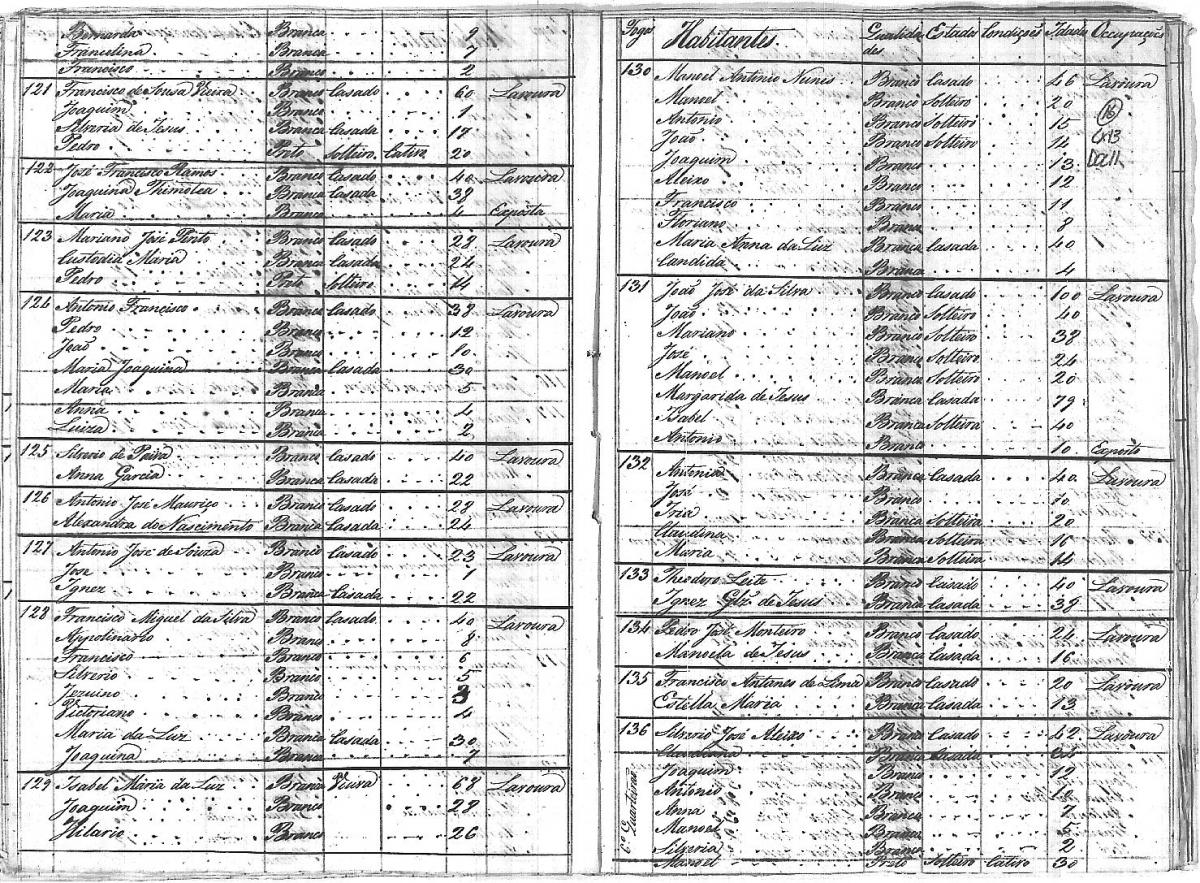 Bernarda Branca 9
Francelina Branca 7
Francisco Branco 2
121 Francisco de Sousa Vieira Branco Casado 60 Lavoura
Joaquim Branco 1
Silveria de Jesus Branca Casada 17
Pedro Preto Solteiro Cativo 20
122 José Francisco Ramos Branco Casado 40 Lavoura
Joaquina Thimotea Branca Casada 38
Maria Branca 4 Exposta
123 Mariano José Pinto Branco Casado 28 Lavoura
Custodia Maria Branca Casada 24
Pedro Preto Solteiro 14
124 Antonio Francisco Branco Casado 38 Lavoura
Pedro Branco 12
João Branco 10
Maria Joaquina Branca Casada 30
Maria Branca 5
Anna Branca 4
Luiza Branca 2
125 Silverio de Paiva Branco Casado 40 Lavoura
Anna Garcia Branca Casada 22
126 Antonio José Mauriço Branco Casado 28 Lavoura
Alexandra do Nascimento Branca Casada 24
127 Antonio José de Souza Branco Casado 23 Lavoura
José Branco 1
Ignez Branca Casada 22
128 Francisco Miguel da Silva Branco Casado 40 Lavoura
Appolinario Branco 8
Francisco Branco 6
Silverio Branco 5
Jezuino Branco 3
Victoriano Branco 4
Maria da Luz Branca Casada 30
Joaquina Branca 7
129 Isabel Maria da Luz Branca Viuva 68 Lavoura
Joaquim Branco 28
Hilario Branco 26
Fogos Habitantes Qualidades Estados Condições Idades Occupações
130 Manoel Antonio Nunes Branco Casado 46 Lavoura
Manoel Branco Solteiro 20
Antonio Branco Solteiro 15
João Branco Solteiro 14
Joaquim Branco 13
Aleixo Branco 12
Francisco Branco 11
Floriano Branco 8
Maria Anna da Luz Branca Casada 40
Candida Branca 4
131 João José da Silva Branco Casado 100 Lavoura
João Branco Solteiro 40
Mariano Branco Solteiro 38
José Branco Solteiro 24
Manoel Branco Solteiro 20
Margarida de Jesus Branca Casada 79
Isabel Branca Solteira 40
Antonio Branco 10 Exposto
132 Antonia Branca Casada 40 Lavoura
José Branco 10
Iria Branca Solteira 20
Claudina Branca Solteira 16
Maria Branca Solteira 14
133 Theodoro Leite Branco Casado 40 Lavoura
Ignez Glz de Jesus Branca Casada 38
134 Pedro José Monteiro Branco Casado 24 Lavoura
Manoela de Jesus Branca Casada 16
135 Francisco Antunes de Lima Branco Casado 20 Lavoura
Estella Maria Branca Casada 13
136 Silverio José Aleixo Branco Casado 42 Lavoura
Branca Casada
Joaquim Branco 12
Antonio Branco 10
Anna Branca 7
Manoel Branco 5
Silveria Branca 2
Manoel Preto Solteiro Cativo 30
6º Quarteirão